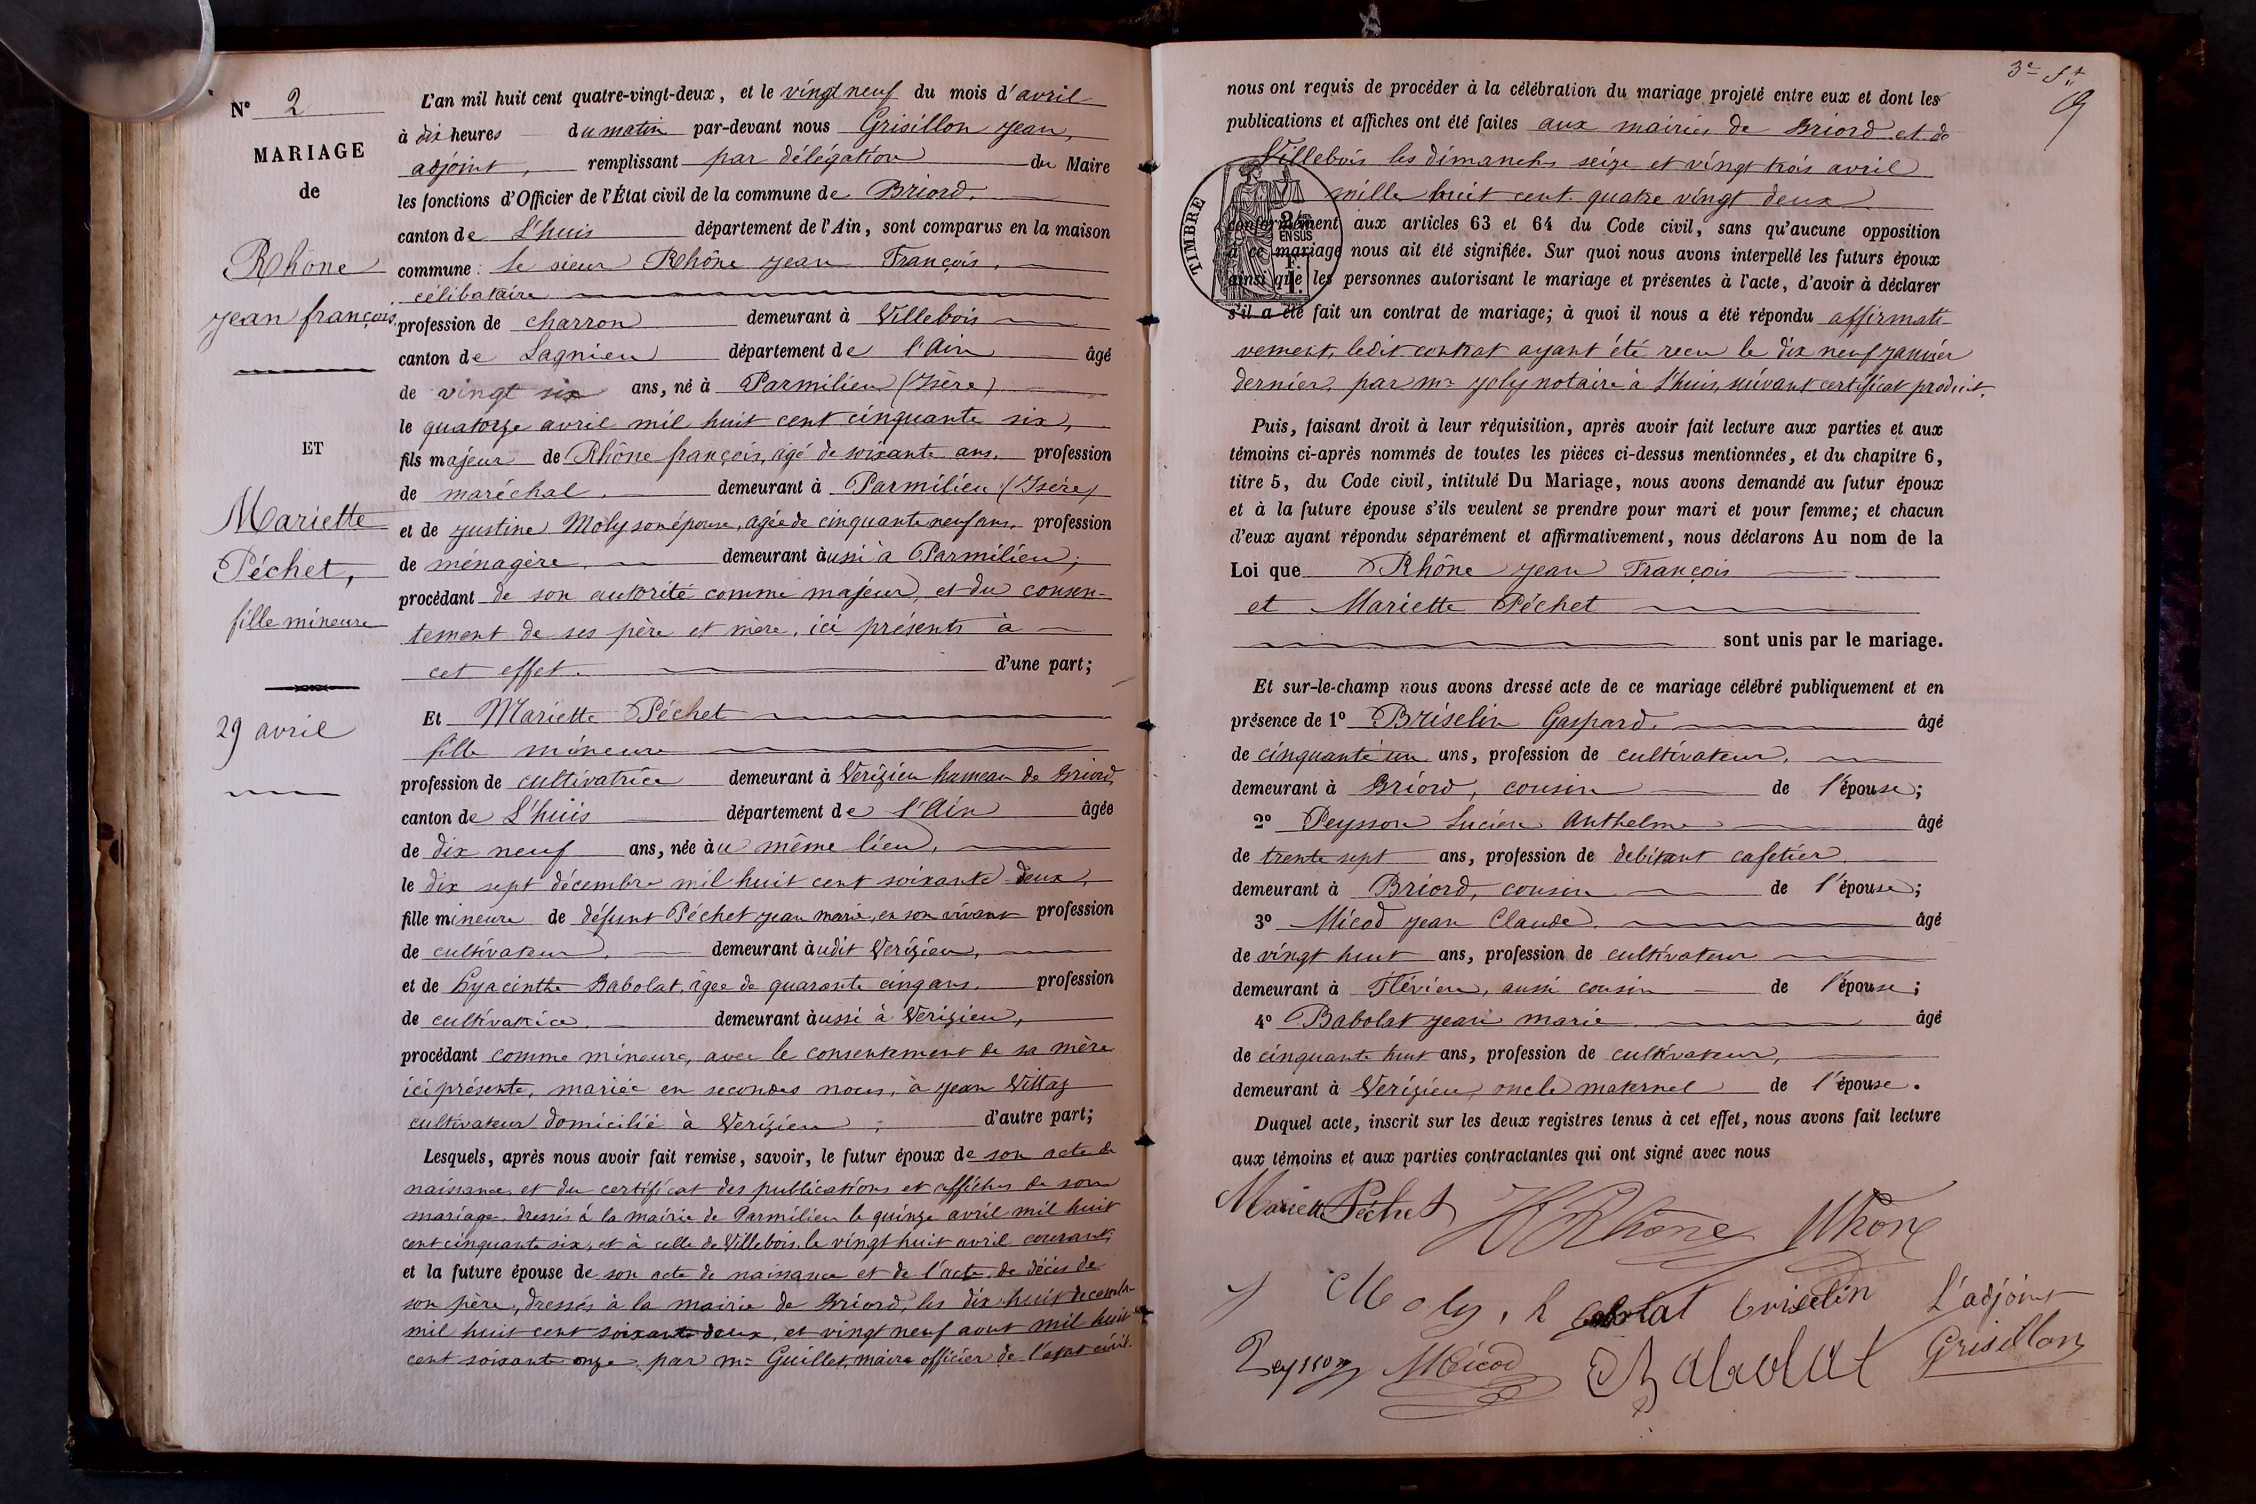 N° 2
MARIAGE
de
Rhône
Jean françois,
ET
Mariette
Péchet,
fille mineure
29 avril
L'an mil huit cent quatre-vingt-deux, et le vingt neuf du mois d'avril
à dix heures du matin par-devant nous Grisillon Jean,
adjoint, remplissant par délégation du Maire
les fonctions d'Officier de l'État civil de la commune de Briord.
canton de L'huis département de l'Ain, sont comparus en la maison
commune : le sieur Rhône Jean François,
célibataire
profession de charron demeurant à Villebois
canton de Lagnieu département de l'Ain âgé
de vingt six ans, né à Parmilieu (Isère)
le quatorze avril mil huit cent cinquante six,
fils majeur de Rhône françois, âgé de soixante ans, profession
de maréchal, demeurant à Parmilieu (Isère)
et de Justine Moly son épouse, agée de cinquante neuf ans, profession
de ménagère, demeurant àussi à Parmilieu,
procédant de son autorité comme majeur, et du consen-
tement de ses père et mère, ici présents à
cet effet. d'une part;
Et Mariette Péchet
fille mineure
profession de cultivatrice demeurant à Verizieu hameau de Briord,
canton de L'huis département de l'Ain âgée
de dix neuf ans, née àu même lieu,
le dix sept décembre mil huit cent soixante deux,
fille mineure de défunt Péchet Jean marie, en son vivant profession
de cultivateur, demeurant àudit Verizieu,
et de Hyacinthe Babolat, âgée de quarante cinq ans, profession
de cultivatrice, demeurant àussi à Verizieu,
procédant comme mineure, avec le consentement de sa mère
ici présente, mariée en secondes noces, à Jean Vittaz
cultivateur domicilié à Verizieu ; d'autre part;
Lesquels, après nous avoir fait remise, savoir, le futur époux de son acte de
naissance, et du certificat des publications et affiches de son
mariage, dressés à la mairie de Parmilieu le quinze avril mil huit
cent cinquante six, et à celle de Villebois, le vingt huit avril courant;
et la future épouse de son acte de naissance et de l'acte de décès de
son père, dressés à la mairie de Briord, les dix huit décembre
mil huit cent soixante deux, et vingt neuf aout mil huit
cent soixante onze, par mr Guillet, maire officier de l'état civil.
3e ft
9
nous ont requis de procéder à la célébration du mariage projeté entre eux et dont les
publications et affiches ont été faites aux mairies de Briord et de
Villebois les dimanches seize et vingt trois avril
mille huit cent quatre vingt deux
conformément aux articles 63 et 64 du Code civil, sans qu'aucune opposition
à ce mariage nous ait été signifiée. Sur quoi nous avons interpellé les futurs époux
ainsi que les personnes autorisant le mariage et présentes à l'acte, d'avoir à déclarer
s'il a été fait un contrat de mariage; à quoi il nous a été répondu affirmati-
vement, ledit contrat ayant été recu le dix neuf janvier
dernier, par mr Joly notaire à L'huis, suivant certificat produit.
TIMBRE
EN SUS
Puis, faisant droit à leur réquisition, après avoir fait lecture aux parties et aux
témoins ci-après nommés de toutes les pièces ci-dessus mentionnées, et du chapitre 6,
titre 5, du Code civil, intitulé Du Mariage, nous avons demandé au futur époux
et à la future épouse s'ils veulent se prendre pour mari et pour femme; et chacun
d'eux ayant répondu séparément et affirmativement, nous déclarons Au nom de la
Loi que Rhône Jean François
et Mariette Péchet
sont unis par le mariage.
Et sur-le-champ nous avons dressé acte de ce mariage célébré publiquement et en
présence de 1° Briselin Gaspard, âgé
de cinquante un ans, profession de cultivateur,
demeurant à Briord, cousin de l'épouse;
2° Peysson Lucien Anthelme âgé
de trente sept ans, profession de debitant cafetier,
demeurant à Briord, cousin de l'épouse;
3° Micod Jean Claude, âgé
de vingt huit ans, profession de cultivateur
demeurant à Flévieu, aussi cousin de l'épouse;
4° Babolat Jean marie âgé
de cinquante huit ans, profession de cultivateur,
demeurant à Verizieu, oncle maternel de l'épouse.
Duquel acte, inscrit sur les deux registres tenus à cet effet, nous avons fait lecture
aux témoins et aux parties contractantes qui ont signé avec nous
Mariette Péchet Rhône Rhone
J Moly, h babolat briselin L'adjoint
Peysson Micod Babolat Grisillon